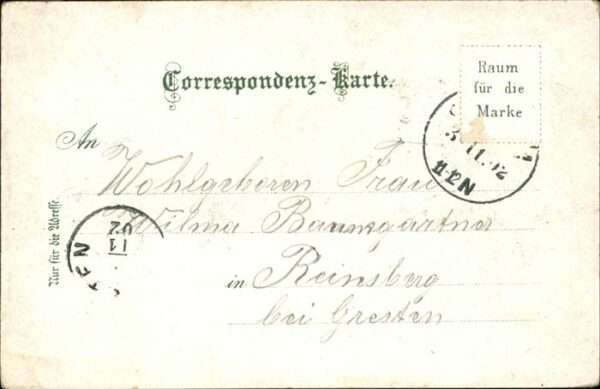 Correspondenz-Karte.
Raum
für die
Marke
An
Wohlgeboren Frau
Wilma Baumgartner
in Reinsberg
bei Gresten
Nur für die Adresse
11-12N
11
02